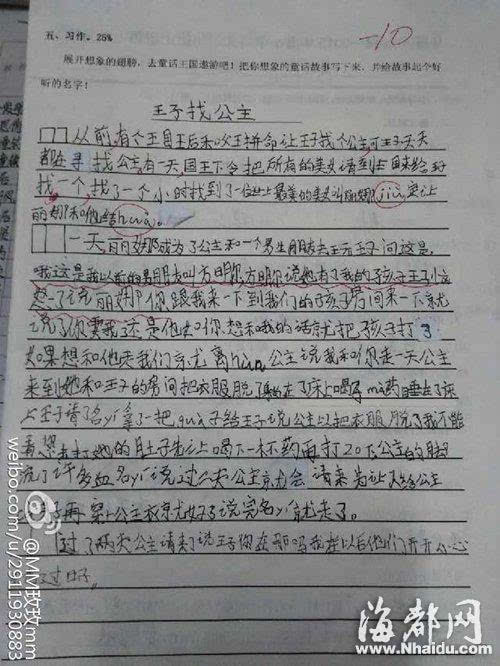 五、习作。25%
-10
展开想象的翅膀，去童话王国遨游吧！把你想象的童话故事写下来，并给故事起个好
听的名字！
王子找公主
从前,有个王国王后和国王拼命让王子找个公主可王子天天
都在寻找公主,有一天国王下令把所有的美女请到王国来给王子
找一个,找了一个小时找到了一位世上最美的美女叫丽娜,jiu要让
丽娜和他结hūn。
一天,丽娜成为了公主和一个男生朋友去玩王子问这是,
哦这是我以前的男朋友叫方明,方明说她有了我的孩子王子小
一了说丽娜你跟我来一下到我们的孩子房间来一下就
说了你要我这是他和你,想和我的话就把孩子打了
如果想和他走我们就离hūn公主说我和你走一天公主
来到她和王子的房间把衣服脱了在床上喝了 mí药睡在了床
上王子请名yī拿了一把 给王子说公主以把衣服脱了我不能
看 去打她的肚子先让喝下一杯药再打20下公主的脚
流了许多血名yī说过 天公主就会 请来
再穿上公主衣就好了说完名yī就走了。
过了两天公主 来了说王子你在那吗我在以后他们开开心心
过日子。
weibo.com/u/2911930883
海都网
www.Nhaidu.com